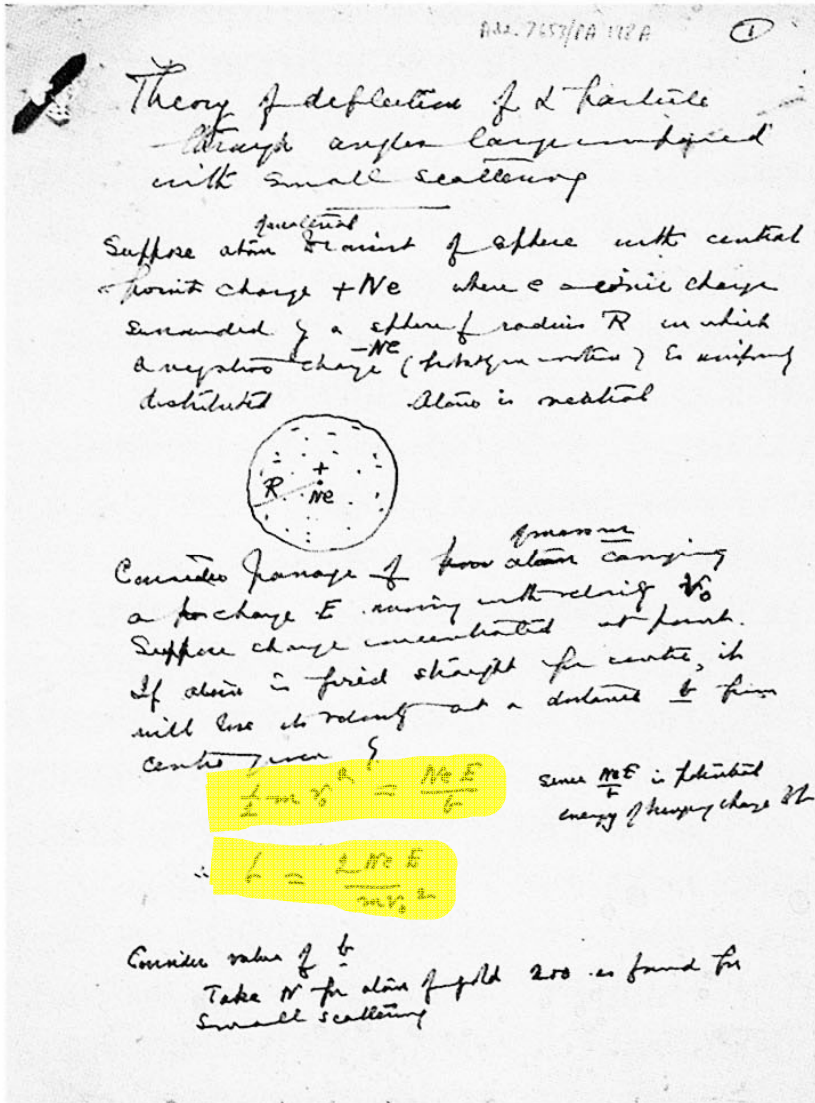 Add. 7653/PA 118 A
1
Theory of deflection of α particle
through angles large compared
with small scattering
of material
Suppose atom consist of sphere with central
point charge + Ne where e = ionic charge
surrounded by a sphere of radius R in which
– Ne
a negative charge ( ) is uniformly
distributed Atom is neutral
+
R Ne
of mass m
Consider passage of atom carrying
a charge E moving with velocity v₀
Suppose charge concentrated at point.
If atom is fired straight for centre, it
will lose its velocity at a distance b from
centre given by
½ m v₀² = NeE/b since NeE/b is potential
energy of charge E
∴ b = 2NeE/mv₀²
Consider value of b
Take N for atom of gold 200 as found for
small scattering